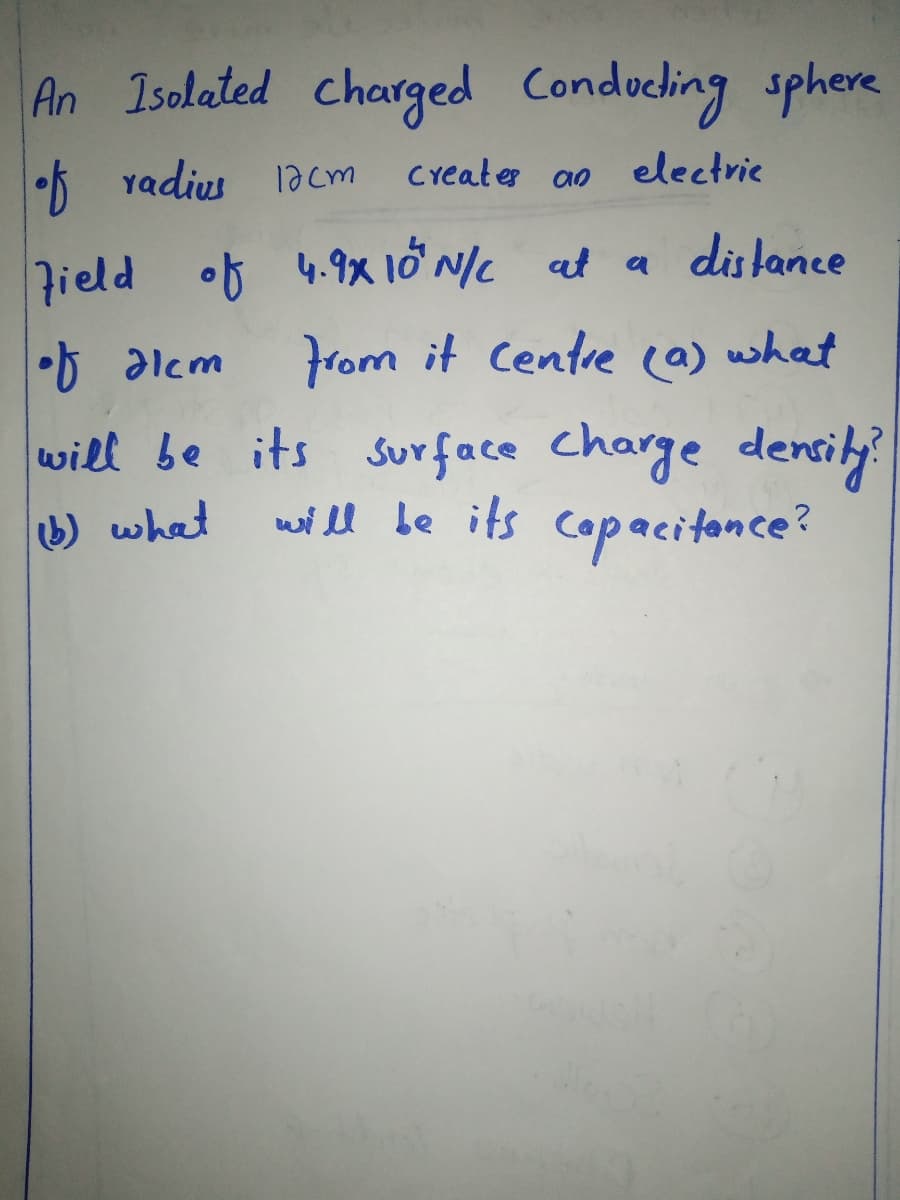 An Isolated charged Conducting sphere
of radius 12cm creates an electric
field of 4.9x10⁴ N/C at a distance
of 21cm from it centre (a) what
will be its surface charge density?
(b) what will be its capacitance?